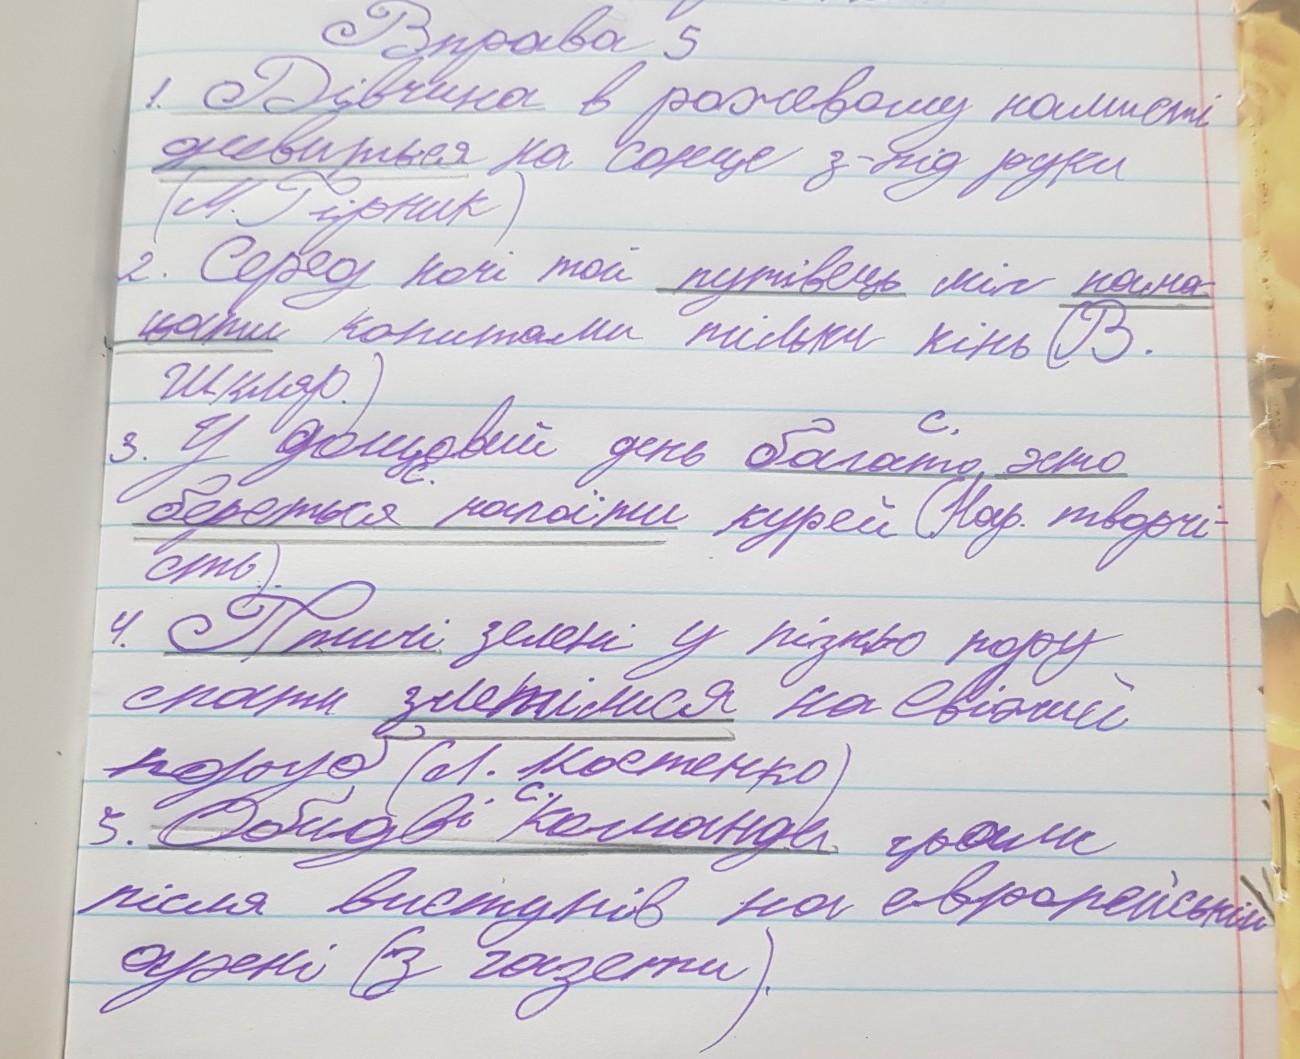 Вправа 5
1. Дівчина в рожевому намисті
дивиться на сонце з-під руки
(М. Гірник)
2. Серед ночі той путівець міг нама-
цати копитами тільки кінь (В.
Шкляр.)
3. У дощовий день багато хто
с.
береться напоїти курей (Нар. творчі-
с.
сть).
4. Птичі зелені у пізню пору
спати злетілися на свіжий
поруб (Л. Костенко)
5. Обидві команди грали
с.
після виступів на європейській
арені (З газети).